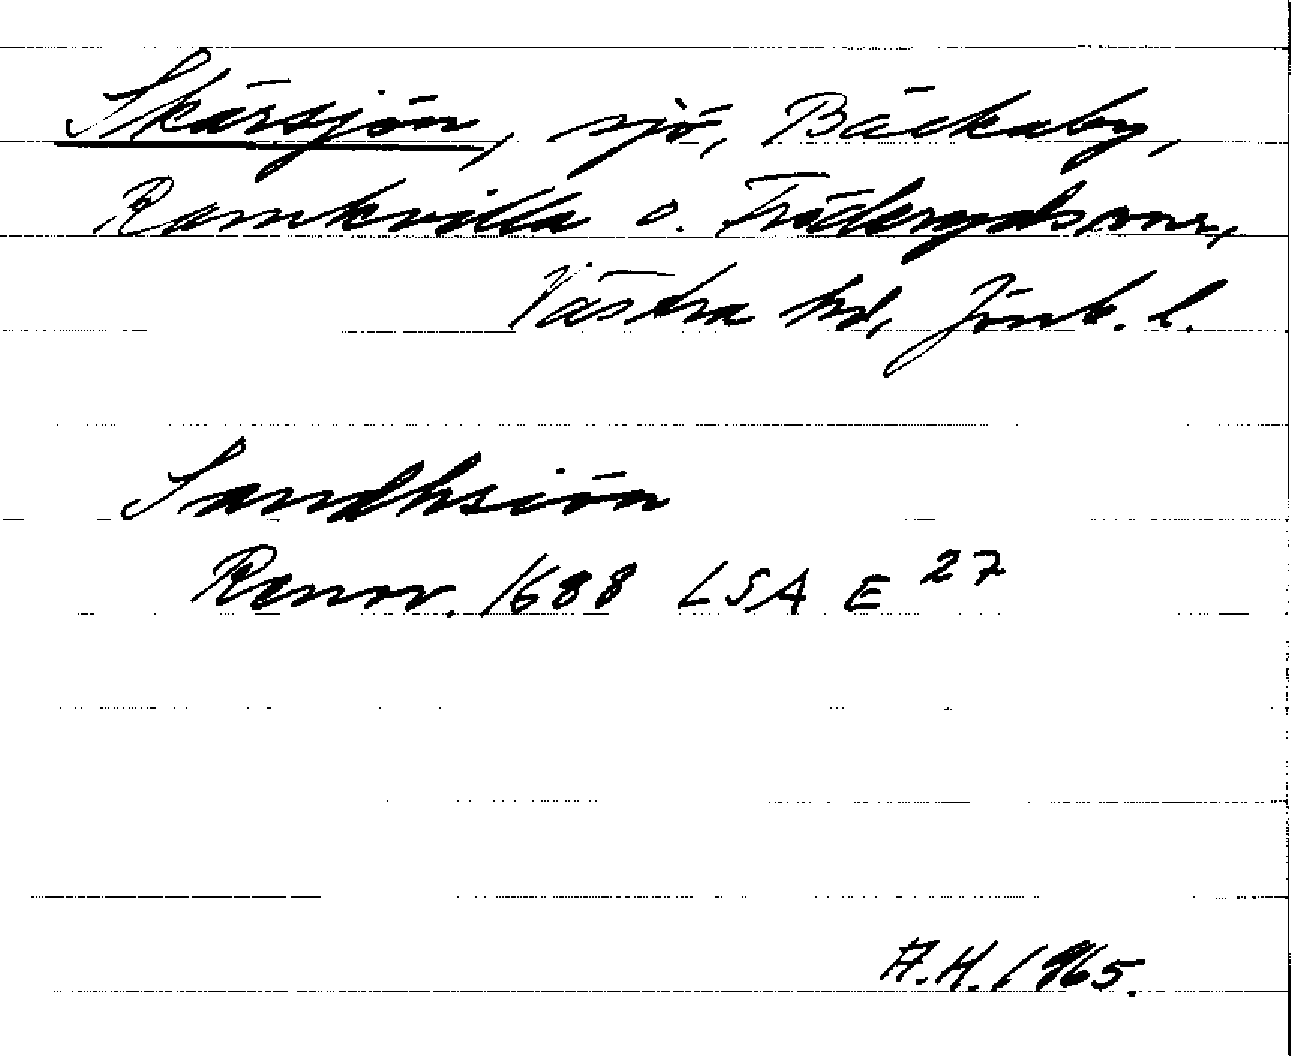 Skärsjön, sjö, Bäckaby,
Ramkvilla o. Fröderyds snr,
Västra hd, Jönk. l.
Sandhsiön
Renov. 1688 LSA E 27
A.H. 1965.